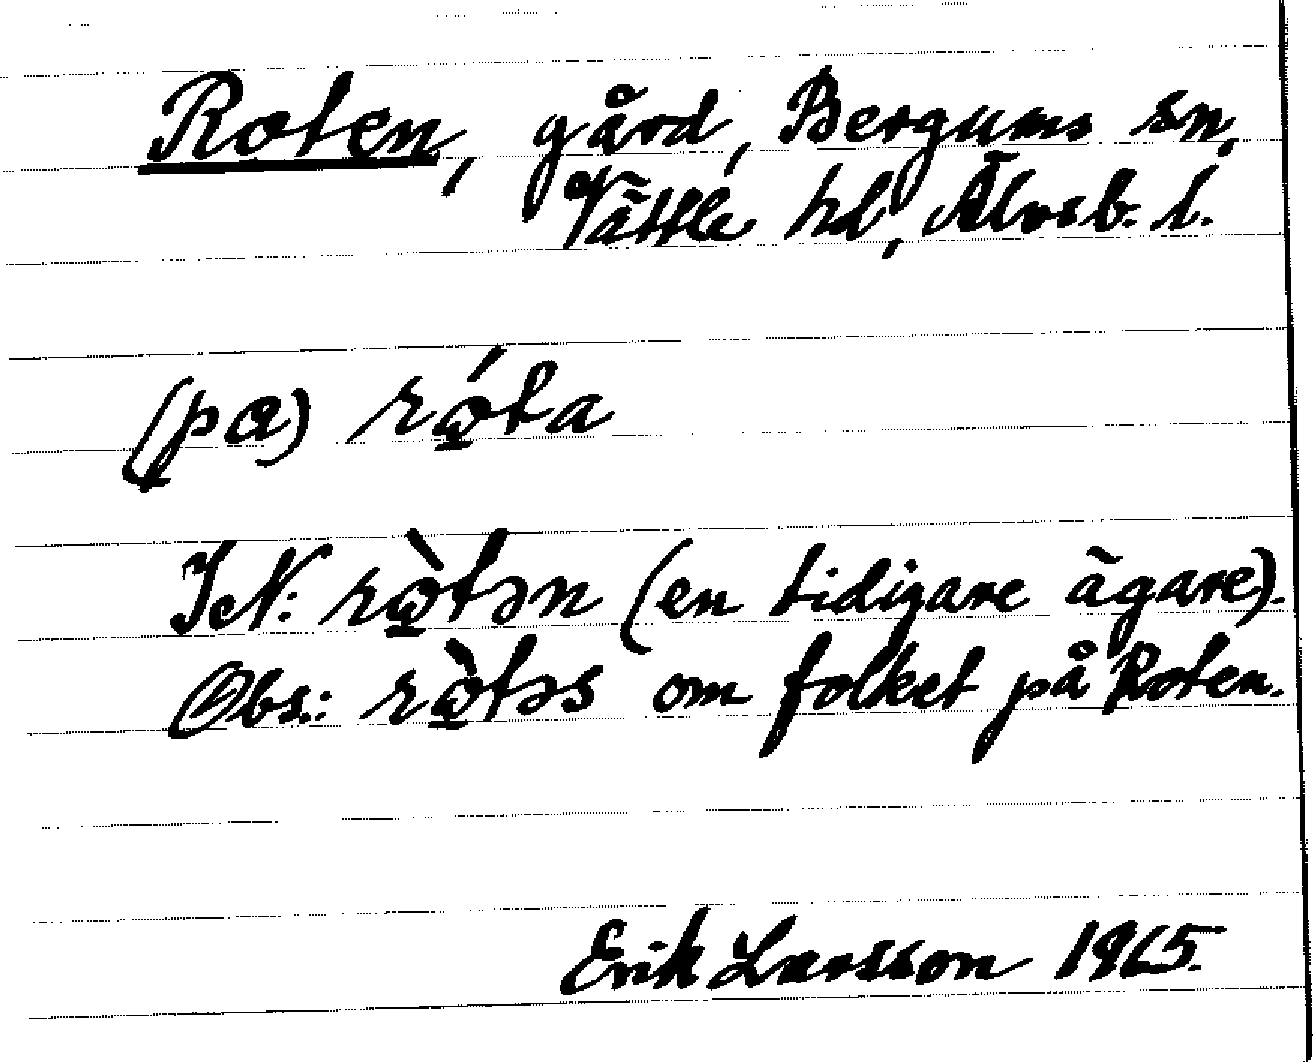 Roten, gård, Bergums sn,
Vättle hd, Älvsb. l.
(pɑ) rǫ́ta
IeN: rǫ̀tən (en tidigare ägare).
Obs.: rǫ̀təs om folket på Roten.
Erik Larsson 1965.